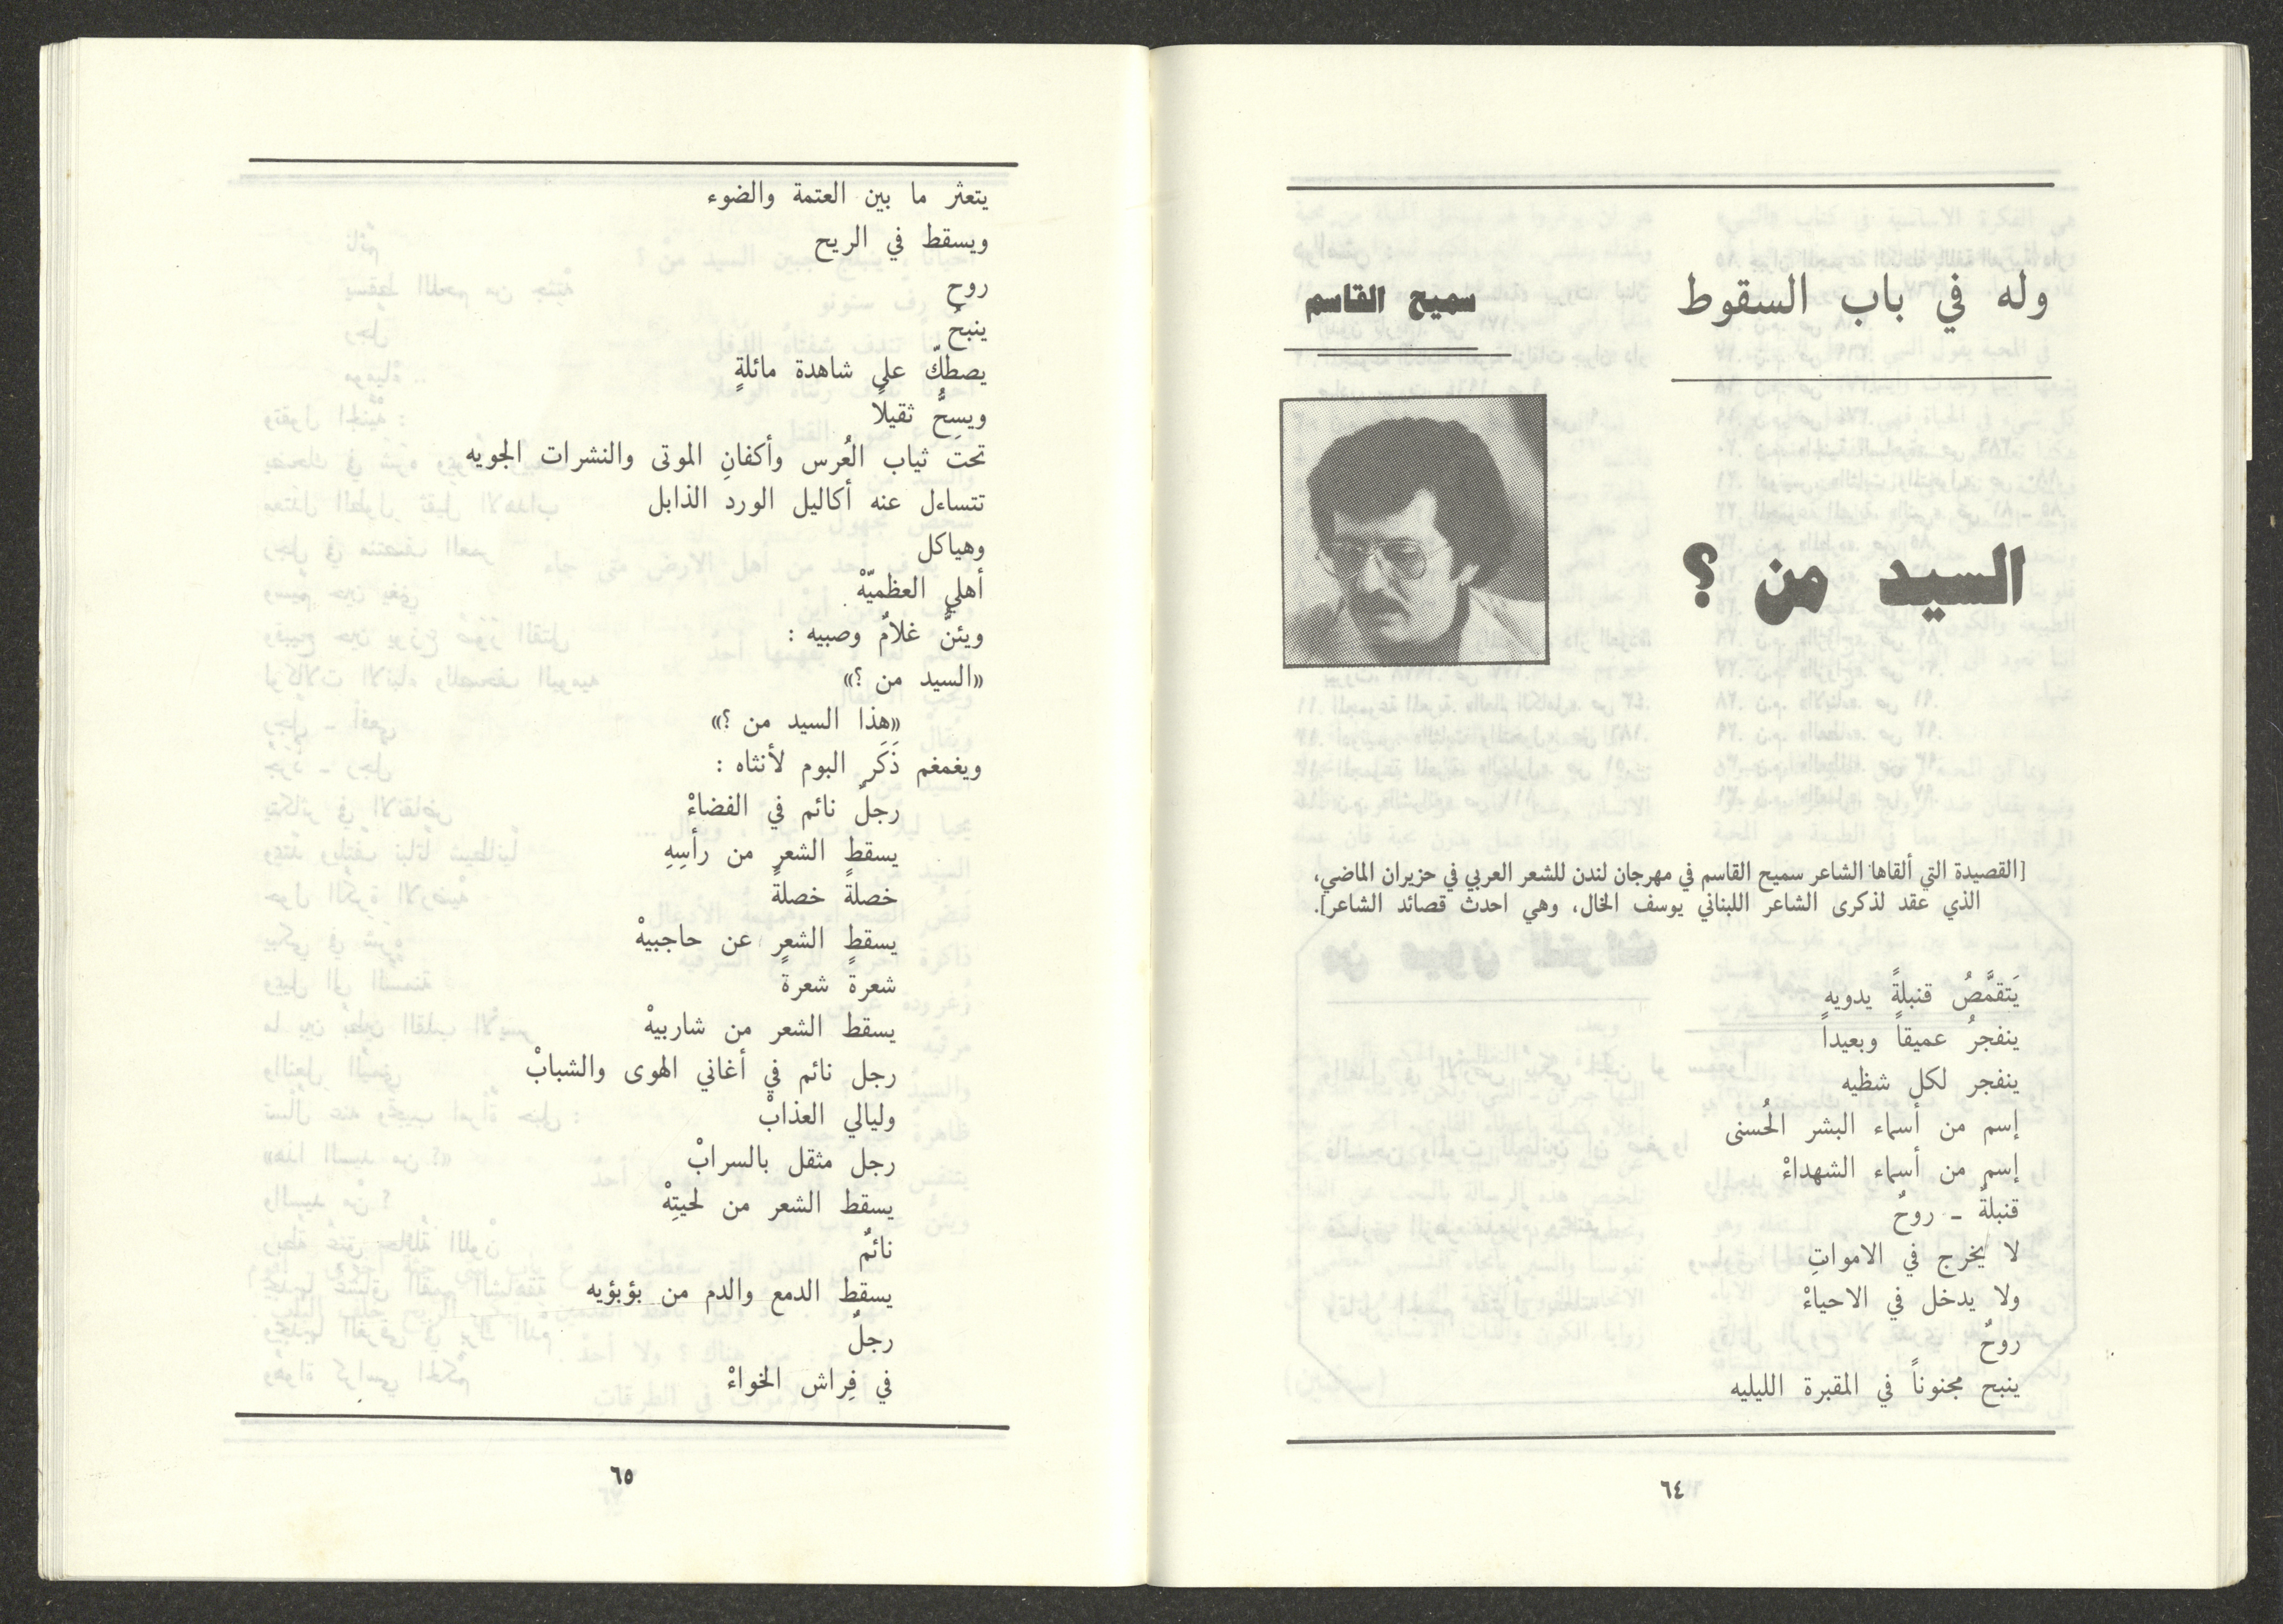 وله في باب السقوط
سميح القاسم
السيد من ؟
[القصيدة التي ألقاها الشاعر سميح القاسم في مهرجان لندن للشعر العربي في حزيران الماضي،
الذي عقد لذكرى الشاعر اللبناني يوسف الخال، وهي احدث قصائد الشاعر].
يَتقمَّصُ قنبلةً يدويه
ينفجرُ عميقاً وبعيداً
ينفجر لكل شظيه
إسم من أسماء البشر الحُسنى
إسم من أسماء الشهداءْ
قنبلةٌ - روحٌ
لا يخرج في الامواتِ
ولا يدخل في الاحياءْ
روحٌ
ينبح مجنوناً في المقبرة الليليه
٦٤
يتعثر ما بين العتمة والضوء
ويسقط في الريح
روح
ينبحُ
يصطكّ على شاهدة مائلةٍ
ويسِحُّ ثقيلًا
تحت ثياب العُرس وأكفانِ الموتى والنشرات الجويه
تتساءل عنه أكاليل الورد الذابل
وهياكل
أهلي العظميّهْ
ويئنُّ غلامٌ وصبيه :
«السيد من ؟»
«هذا السيد من ؟»
ويغمغم ذَكَر البوم لأنثاه :
رجلٌ نائم في الفضاءْ
يسقط الشعر من رأسِهِ
خصلةً خصلةً
يسقط الشعر عن حاجبيهْ
شعرةً شعرةً
يسقط الشعر من شاربيهْ
رجل نائم في أغاني الهوى والشبابْ
وليالي العذابْ
رجل مثقل بالسرابْ
يسقط الشعر من لحيتِهْ
نائمٌ
يسقط الدمع والدم من بؤبؤيه
رجلٌ
في فِراش الخواءْ
٦٥